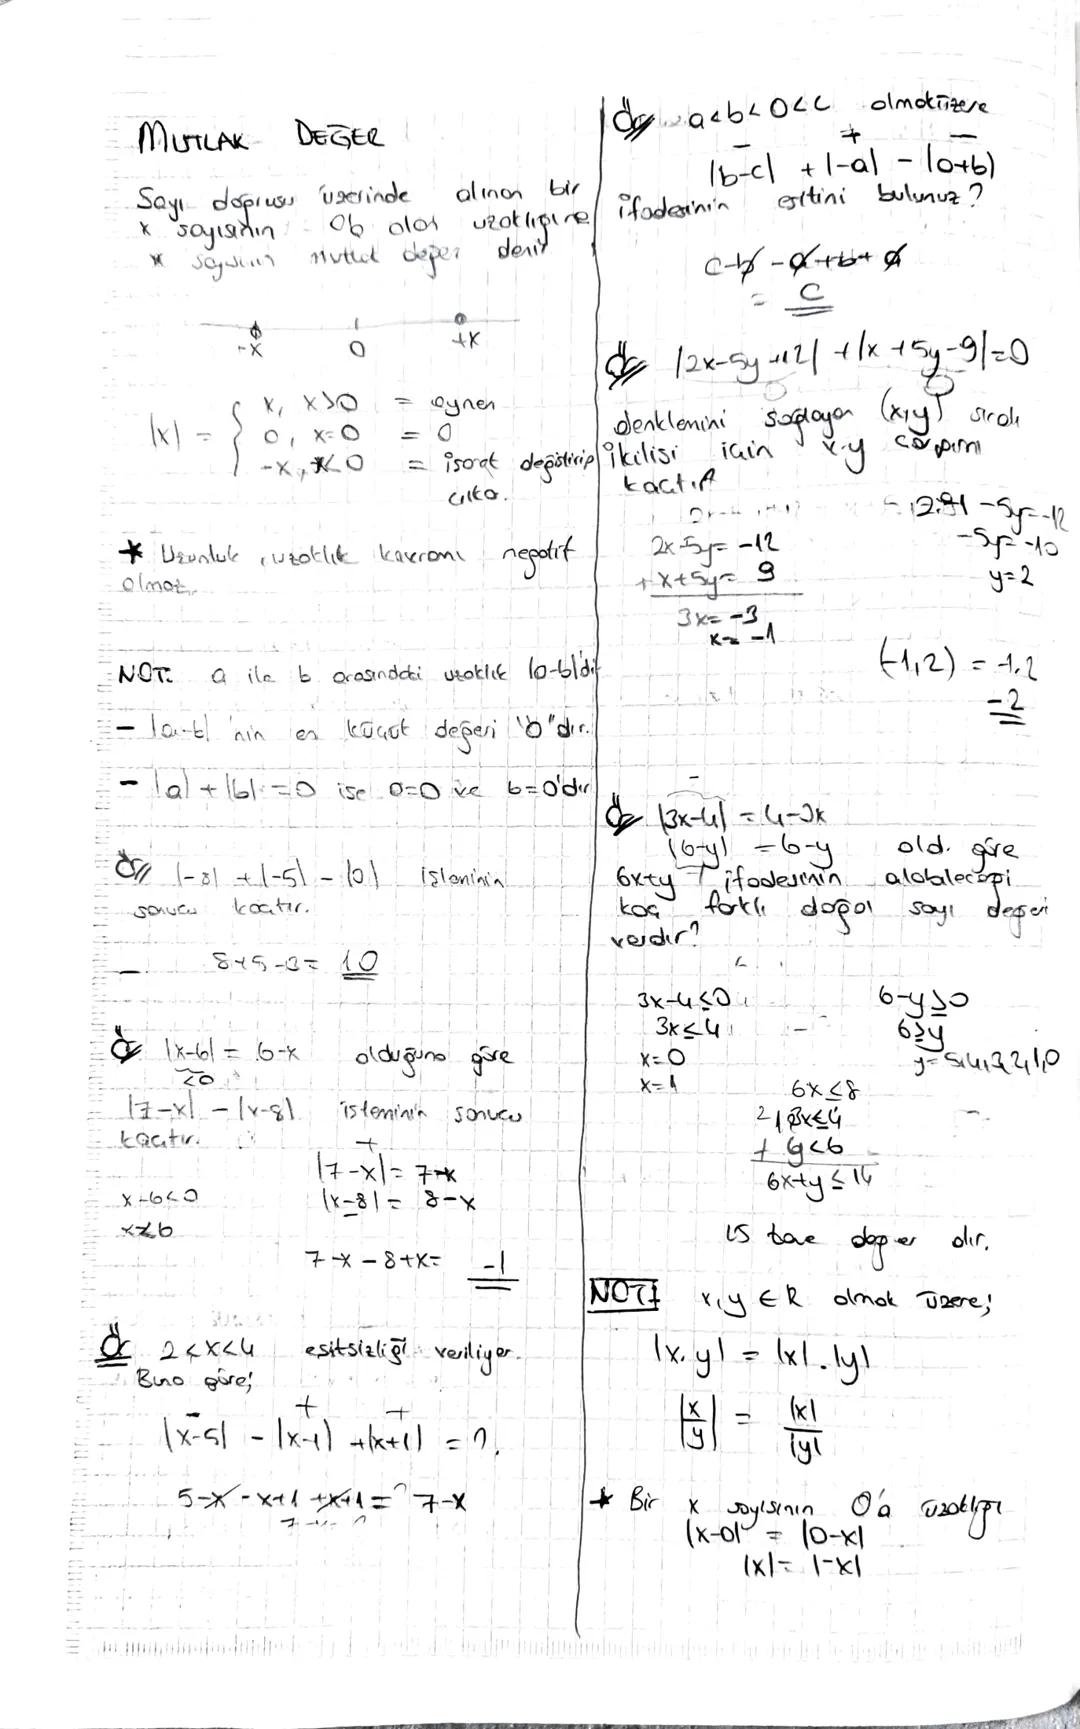 MUTLAK DEĞER
Sayı doğrusu üzerinde alınan bir
x sayısının 0'a olan uzaklığına
x sayısının mutlak değer denir
-x 0 +x
|x| = { x, x>0 = aynen
0, x=0 = 0
-x, x<0 = işaret değiştirip
çıkar.
* Uzunluk, uzaklık kavramı negatif
olmaz.
NOT: a ile b arasındaki uzaklık |a-b|'dir
- |a-b| 'nin en küçük değeri "0"dır.
- |a| + |b| = 0 ise a=0 ve b=0'dır
Ör |-8| + |-5| - |0| işleminin
sonucu kaçtır.
8+5-3= 10
Ör |x-6| = 6-x olduğuna göre
≤0
|7-x| - |x-8| işleminin sonucu
kaçtır.
+
|7-x| = 7-x
x-6<0 |x-8| = 8-x
x<6
7-x-8+x= -1
Ör 2<x<4 eşitsizliği veriliyor.
Buna göre;
- + +
|x-5| - |x-1| + |x+1| = ?
5-x-x+1+x+1= 7-x
Ör a<b<0<c olmak üzere
- + -
|b-c| + |-a| - |a+b|
ifadesinin eşitini bulunuz?
c-b-a+b+a
= c
Ör |2x-5y+12| + |x+5y-9|=0
0 0
denklemini sağlayan (x,y) sıralı
ikilisi için x.y çarpımı
kaçtır
2x-5y= -12
+ x+5y= 9
3x= -3
x= -1
-5y=-12
-5y=-10
y=2
(-1,2) = -1.2
-2
-
Ör |3x-4| = 4-3x
|6-y| = 6-y old. göre
6x+y ifadesinin alabileceği
kaç farklı doğal sayı değeri
vardır?
3x-4≤0 6-y≥0
3x≤4 6≥y
x=0 y=5,4,3,2,1,0
x=1
6x≤8
2/ 3x≤4
+ y<6
6x+y≤14
15 tane değer alır.
NOT: x,y ∈ R olmak üzere;
|x.y| = |x|.|y|
|x/y| = |x|/|y|
* Bir x sayısının 0'a uzaklığı
|x-0| = |0-x|
|x| = |-x|